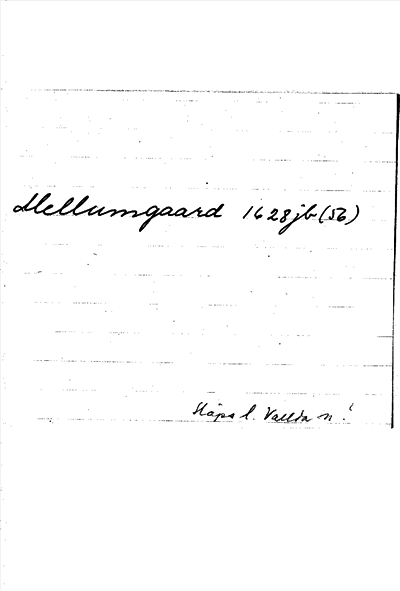 Mellumgaard 1628 jb (56)
Släps l. Vallda n.